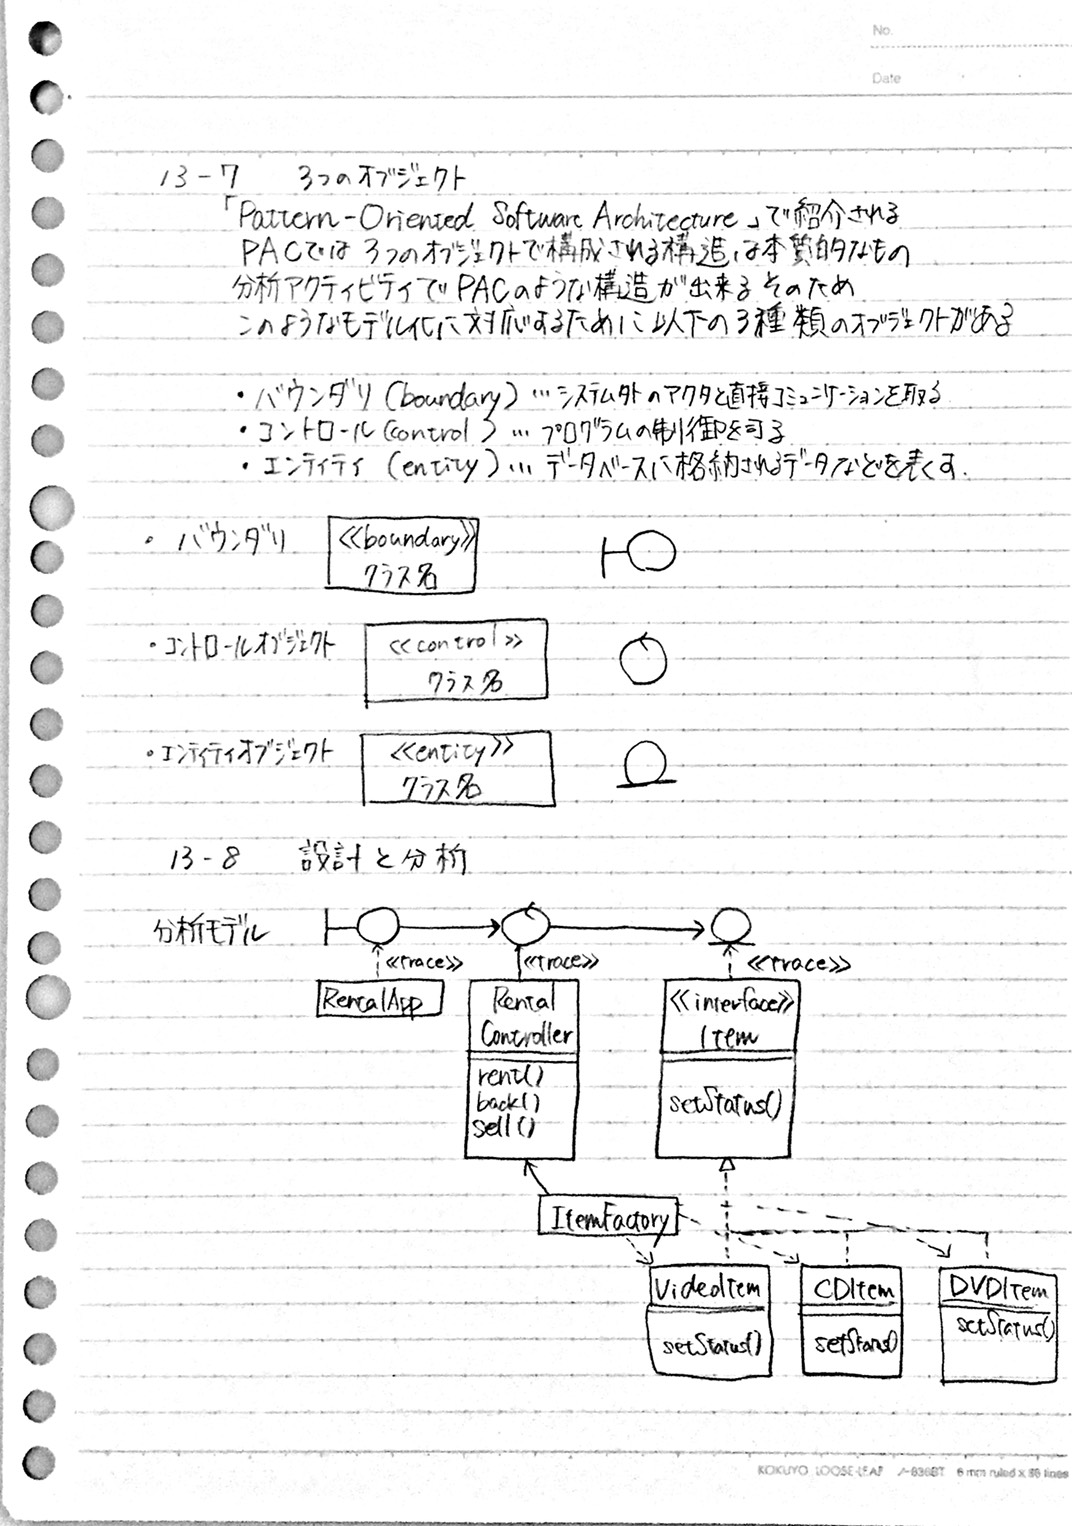 No.
Date
13-7 3つのオブジェクト
「Pattern-Oriented Software Architecture」で紹介される
PACでは 3つのオブジェクトで構成される構造は本質的なもの
分析アクティビティでPACのような構造が出来る そのため
このようなモデル化に対応するために以下の3種類のオブジェクトがある
・バウンダリ(boundary)…システム外のアクタと直接コミュニケーションを取る
・コントロール(control)…プログラムの制御を司る
・エンティティ(entity)…データベースに格納されるデータなどを表くす.
・バウンダリ <<boundary>>
クラス名
・コントロールオブジェクト <<control>>
クラス名
・エンティティオブジェクト <<entity>>
クラス名
13-8 設計と分析
分析モデル
<<trace>> <<trace>> <<trace>>
RentalApp
Rental
Controller
rent()
back()
sell()
<<interface>>
Item
setStatus()
ItemFactory
VideoItem
setStatus()
CDItem
setStatus()
DVDItem
setStatus()
KOKUYO LOOSE-LEAF ノ-836BT 6 mm ruled x 36 lines